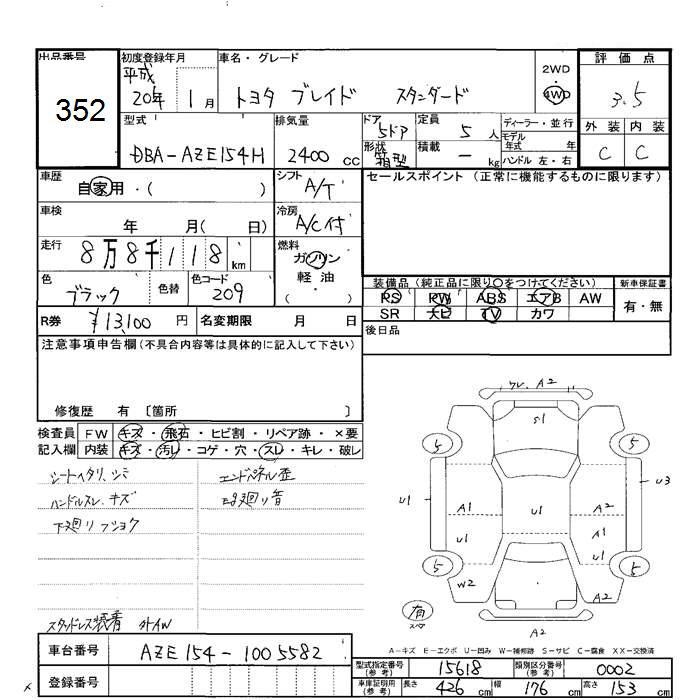 出品番号 初度登録年月 車名・グレード 2WD 評価点
352 平成 20年 1月 トヨタ ブレイド スタンダード 4WD 3.5
型式 排気量 ドア 定員 ディーラー・並行 外装 内装
DBA-AZE154H 2400cc 5ドア 5人 モデル年式 年 C C
形状 箱型 積載 - kg ハンドル 左・右
車歴 自家用・( ) シフト A/T セールスポイント (正常に機能するものに限ります)
車検 年 月( 日) 冷房 A/C付
走行 8万8千118km 燃料 ガソリン
軽油
・( )
色 ブラック 色替 色コード 209
装備品(純正品に限り○をつけてください) 新車保証書
PS PW ABS エアB AW 有・無
SR ナビ TV カワ
R券 ¥13,100円 名変期限 月 日 後日品
注意事項申告欄(不具合内容等は具体的に記入して下さい)
修復歴 有 〔箇所 〕
検査員 FW キズ・飛石・ヒビ割・リペア跡・×要
記入欄 内装 キズ・汚レ・コゲ・穴・スレ・キレ・破レ
シートヘタリ、シミ エンドパネル歪
ハンドルスレ、キズ
下廻リ フショク
スタッドレス装着 外AW
ワレ、A2
S1
5 5
U1 U3
A1 A2
U1 U1 A1
U1
5 5
W2 A2
有
スペア
A2
A-キズ E-エクボ U-凹み W-補修跡 S-サビ C-腐食 XX-交換済
車台番号 AZE154-1005582
登録番号
型式指定番号(参考) 15618 類別区分番号(参考) 0002
車庫証明用(参考) 長さ 426cm 幅 176cm 高さ 153cm